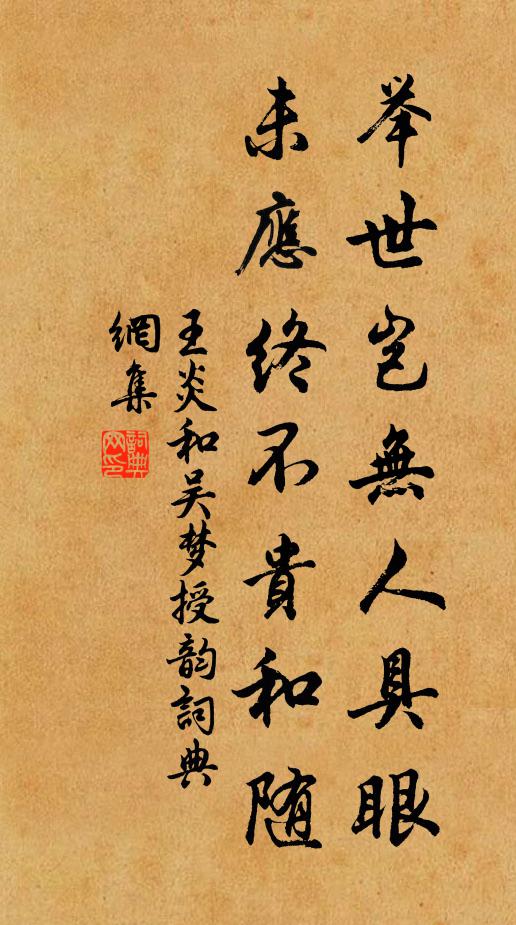 举世岂無人具眼
未應終不貴和随
王炎和吴梦授韵詞典
網集
詞典
网印